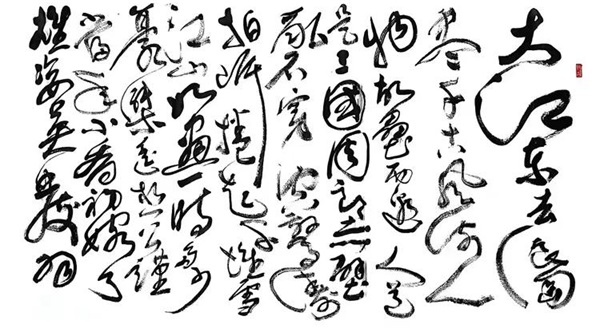 大江东去浪淘
尽千古风流人
物故垒西边人道
是三國周郎赤壁
乱石穿空惊涛
拍岸捲起千堆雪
江山如畫一時多少
豪傑遥想公瑾
當年小乔初嫁了
雄姿英發羽